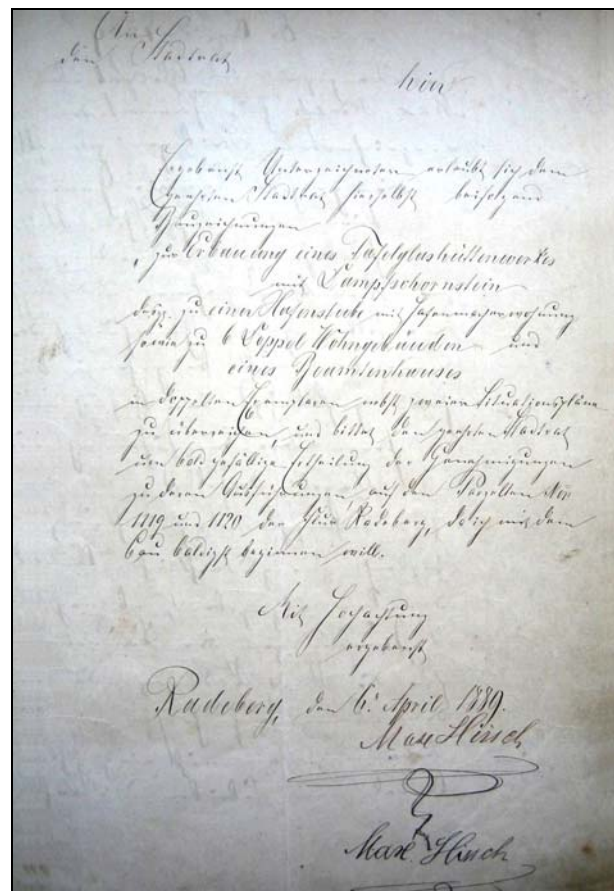 An
den Stadtrat
hier
Ergebenst Unterzeichneter erlaubt sich dem
geehrten Stadtrat hierselbst beifolgend
Bauzeichnungen
zur Erbauung eines Tafelglashüttenwerkes
mit Dampfschornstein
desgl. zu einer Hafenstube mit Hafenmacherwohnung
sowie zu 6 Doppel Wohngebäuden und
eines Beamtenhauses
in doppelten Exemplaren nebst zweier Situationspläne
zu überreichen, und bittet den geehrten Stadtrat
um baldgefällige Ertheilung der Genehmigungen
zu deren Ausführungen auf den Parzellen Nro
1119 und 1120 der Flur Radeberg, da ich mit dem
Bau baldigst beginnen will.
Mit Hochachtung
ergebenst
Radeberg, den 6. April 1889.
Max Hirsch
Max Hirsch